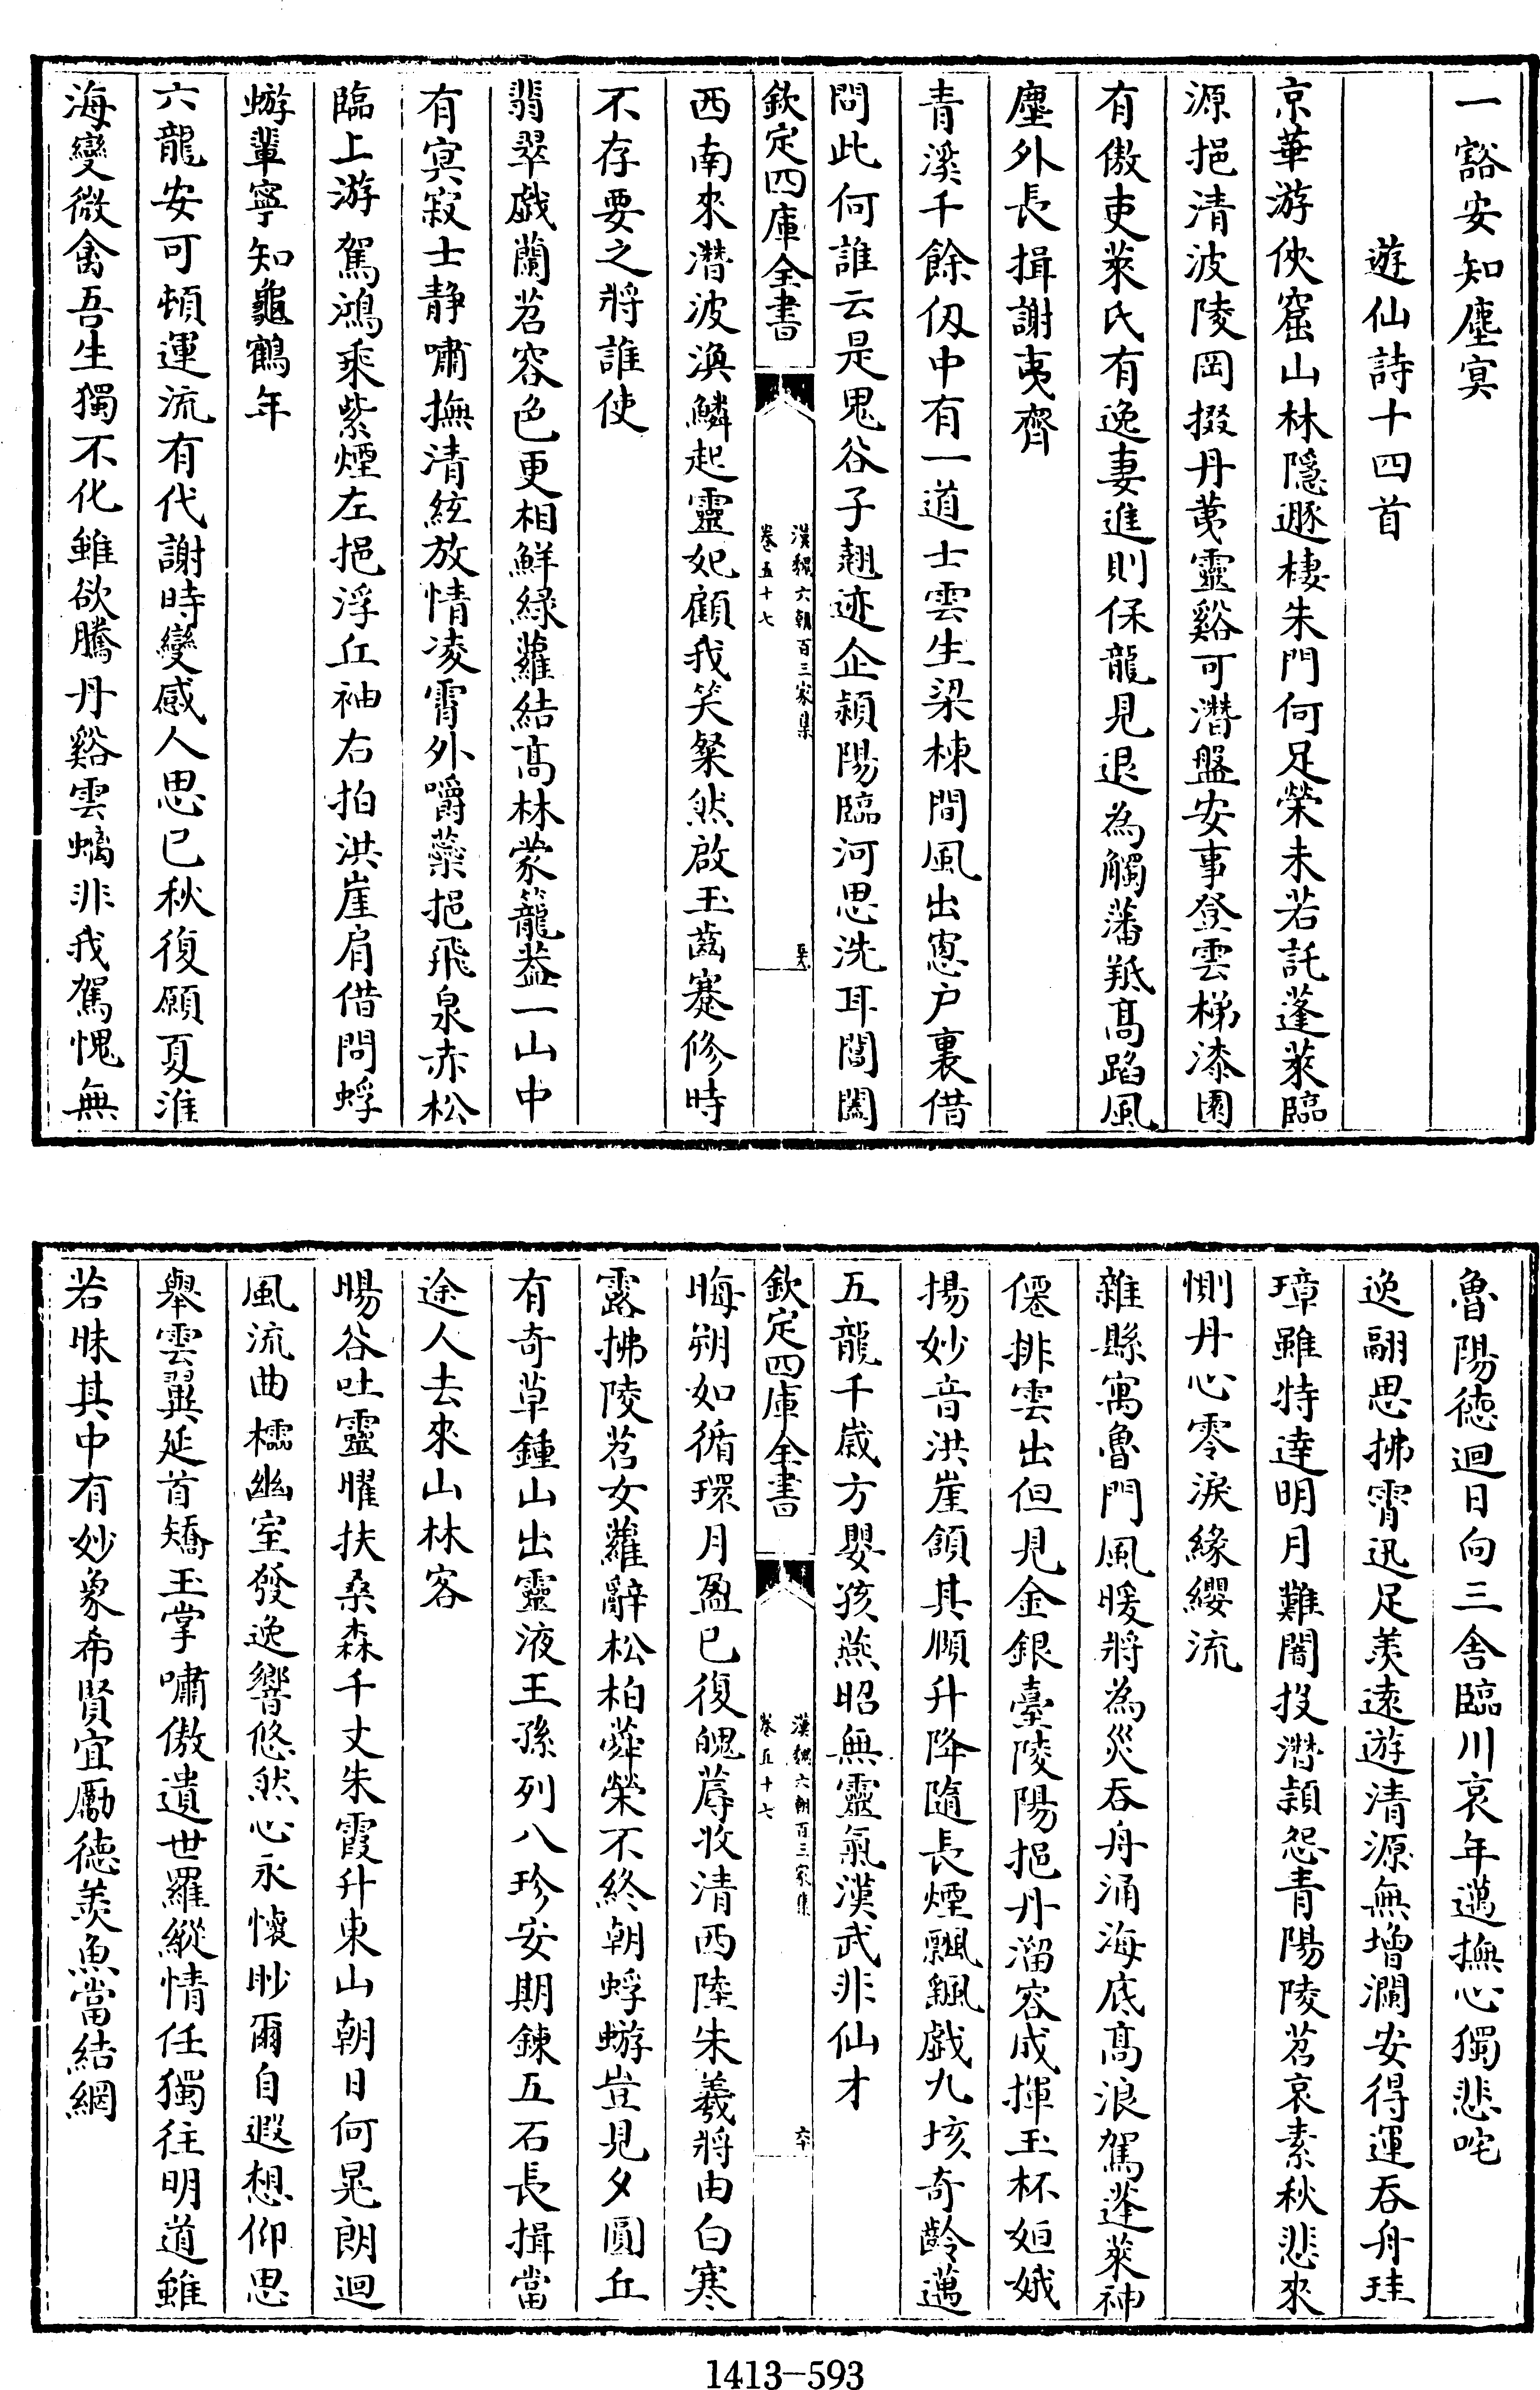 一豁安知塵冥
遊仙詩十四首
京華游俠窟山林隱遯棲朱門何足榮未若託蓬萊臨
源挹清波陵岡掇丹荑靈谿可潛盤安事登雲梯漆園
有傲吏萊氏有逸妻進則保龍見退為觸藩羝髙蹈風
塵外長揖謝夷齊
青溪千餘仭中有一道士雲生梁棟間風出窗户裏借
問此何誰云是鬼谷子翹迹企潁陽臨河思洗耳閶闔
欽定四庫全書
漢魏六朝百三家集
卷五十七
西南來潛波渙鱗起靈妃顧我笑粲然啟玉齒蹇修時
不存要之將誰使
翡翠戯蘭苕容色更相鮮緑蘿結髙林蒙籠葢一山中
有冥寂士静嘯撫清絃放情凌霄外嚼蘂挹飛泉赤松
臨上游駕鴻乘紫煙左挹浮丘袖右拍洪崖肩借問蜉
蝣輩寧知龜鶴年
六龍安可頓運流有代謝時變感人思已秋復願夏淮
海變微禽吾生獨不化雖欲騰丹谿雲螭非我駕愧無
魯陽德迴日向三舎臨川哀年邁撫心獨悲咤
逸翮思拂霄迅足羨遠遊清源無增瀾安得運吞舟珪
璋雖特達明月難闇投潛頴怨青陽陵苕哀素秋悲來
惻丹心零淚緣纓流
雜縣寓魯門風暖將為災吞舟涌海底髙浪駕蓬萊神
僊排雲出但見金銀臺陵陽挹丹溜容成揮玉杯姮娥
揚妙音洪崖頷其頤升降隨長煙飄颻戯九垓奇齡邁
五龍千歲方嬰孩燕昭無靈氣漢武非仙才
欽定四庫全書
漢魏六朝百三家集
卷五十七
六十
晦朔如循環月盈已復魄蓐收清西陸朱羲將由白寒
露拂陵苕女蘿辭松柏蕣榮不終朝蜉蝣豈見夕圓丘
有奇草鍾山出靈液王孫列八珍安期鍊五石長揖當
途人去來山林客
暘谷吐靈曜扶桑森千丈朱霞升東山朝日何晃朗迴
風流曲櫺幽室發逸響悠然心永懷眇爾自遐想仰思
舉雲翼延首矯玉掌嘯傲遺世羅縱情任獨往明道雖
若昧其中有妙象希賢宜勵德羨魚當結網
1413-593